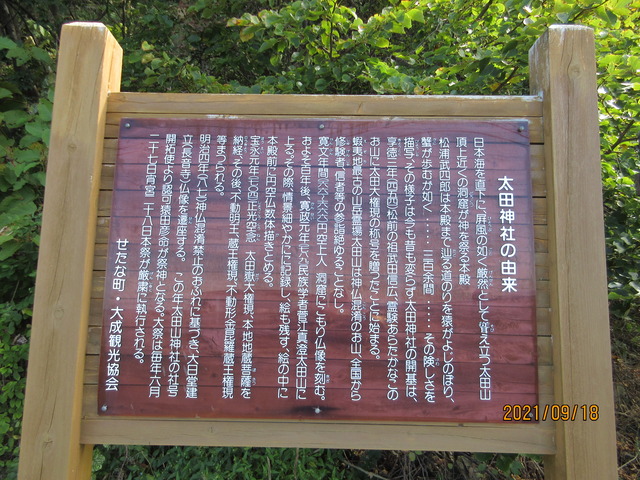 太田神社の由来
日本海を直下に「屏風の如く厳然として聳え立つ太田山
頂上近くの洞窟が神を祭る本殿
松浦武四郎は本殿まで辿る道のりを猿がよじのぼり、
蟹が歩むが如く……二百余間……その険しさを
描写、その様子は今も昔も変らず太田神社の開基は、
享徳三年(一四五四)松前の祖武田信広、霊験あらたかなこの
お山に太田大権現の称号を贈ったことに始まる。
蝦夷地最古の山岳霊場太田山は神仏混淆のお山、全国から
修験者、信者等の参詣絶ゆることなし。
寛文年間(一六六六)円空上人、洞窟にこもり仏像を刻む。
およそ百年後、寛政元年民族学者菅江真澄太田山に
上る。その際、情景細やかに記録し、絵も残す。絵の中に
本殿前に円空仏数体描きとめる。
宝永元年正光空念、太田嶽大権現、本地地蔵菩薩を
納経。その後、不動明王、蔵王権現、不動形金毘羅蔵王権現
等まつられる。
明治四年(一八七一)神仏混淆禁止のお触れに基づき、大日堂建
立(長音寺)仏像を遷座する。この年太田山神社の社号
開拓使より認可猿田彦命が祭神となる。大祭は毎年六月
二十七日宵宮、二十八日本祭が厳粛に執行される。
せたな町・大成観光協会
2021/09/18